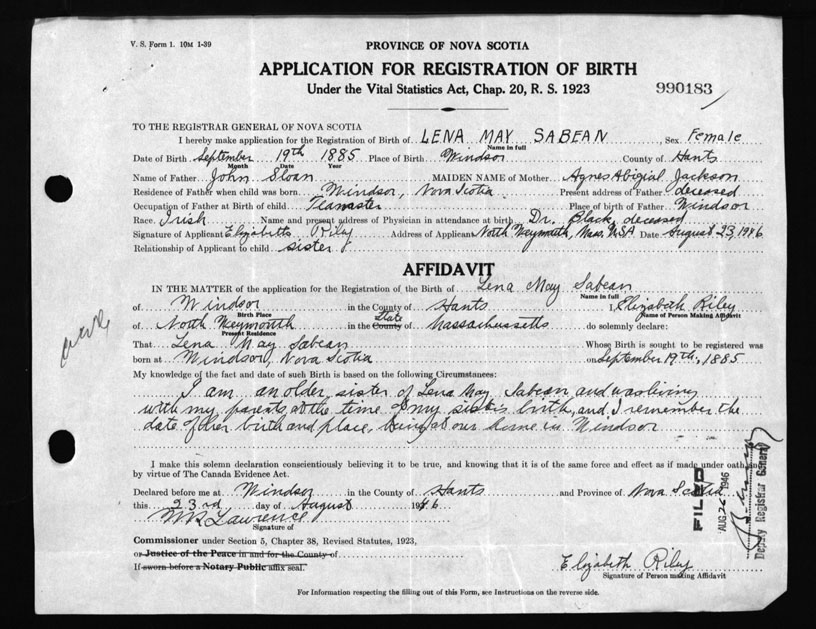 V. S. Form 1. 10M 1-39
PROVINCE OF NOVA SCOTIA
APPLICATION FOR REGISTRATION OF BIRTH
Under the Vital Statistics Act, Chap. 20, R. S. 1923
990183
TO THE REGISTRAR GENERAL OF NOVA SCOTIA
I hereby make application for the Registration of Birth of LENA MAY SABEAN, Sex Female
Name in full
Date of Birth September 19th 1885 Place of Birth Windsor County of Hants
Month Date Year
Name of Father John Sloan MAIDEN NAME of Mother Agnes Abigial Jackson
Residence of Father when child was born Windsor, Nova Scotia Present address of Father deceased
Occupation of Father at Birth of child Teamster Place of birth of Father Windsor
Race Irish Name and present address of Physician in attendance at birth Dr. Black, deceased
Signature of Applicant Elizabeth Riley Address of Applicant North Weymouth, Mass, USA Date August 23, 1946
Relationship of Applicant to child sister
AFFIDAVIT
IN THE MATTER of the application for the Registration of the Birth of Lena May Sabean
Name in full
of Windsor in the County of Hants I, Elizabeth Riley
Birth Place Name of Person Making Affidavit
State
of North Weymouth in the County of Massachusetts do solemnly declare:
Present Residence
That Lena May Sabean Whose Birth is sought to be registered was
born at Windsor, Nova Scotia on September 19th, 1885
My knowledge of the fact and date of such Birth is based on the following Circumstances:
I am an older sister of Lena May Sabean and was living
with my parents at the time of my sisters birth, and I remember the
date of her birth and place, being at our home in Windsor
I make this solemn declaration conscientiously believing it to be true, and knowing that it is of the same force and effect as if made under oath and
by virtue of The Canada Evidence Act.
Declared before me at Windsor in the County of Hants and Province of Nova Scotia
this 23rd day of August 1946
WR Lawrence
Signature of
Commissioner under Section 5, Chapter 38, Revised Statutes, 1923,
or Justice of the Peace in and for the County of
If sworn before a Notary Public affix seal.
Elizabeth Riley
Signature of Person making Affidavit
For Information respecting the filling out of this Form, see Instructions on the reverse side.
FILED
AUG 26 1946
Deputy Registrar General